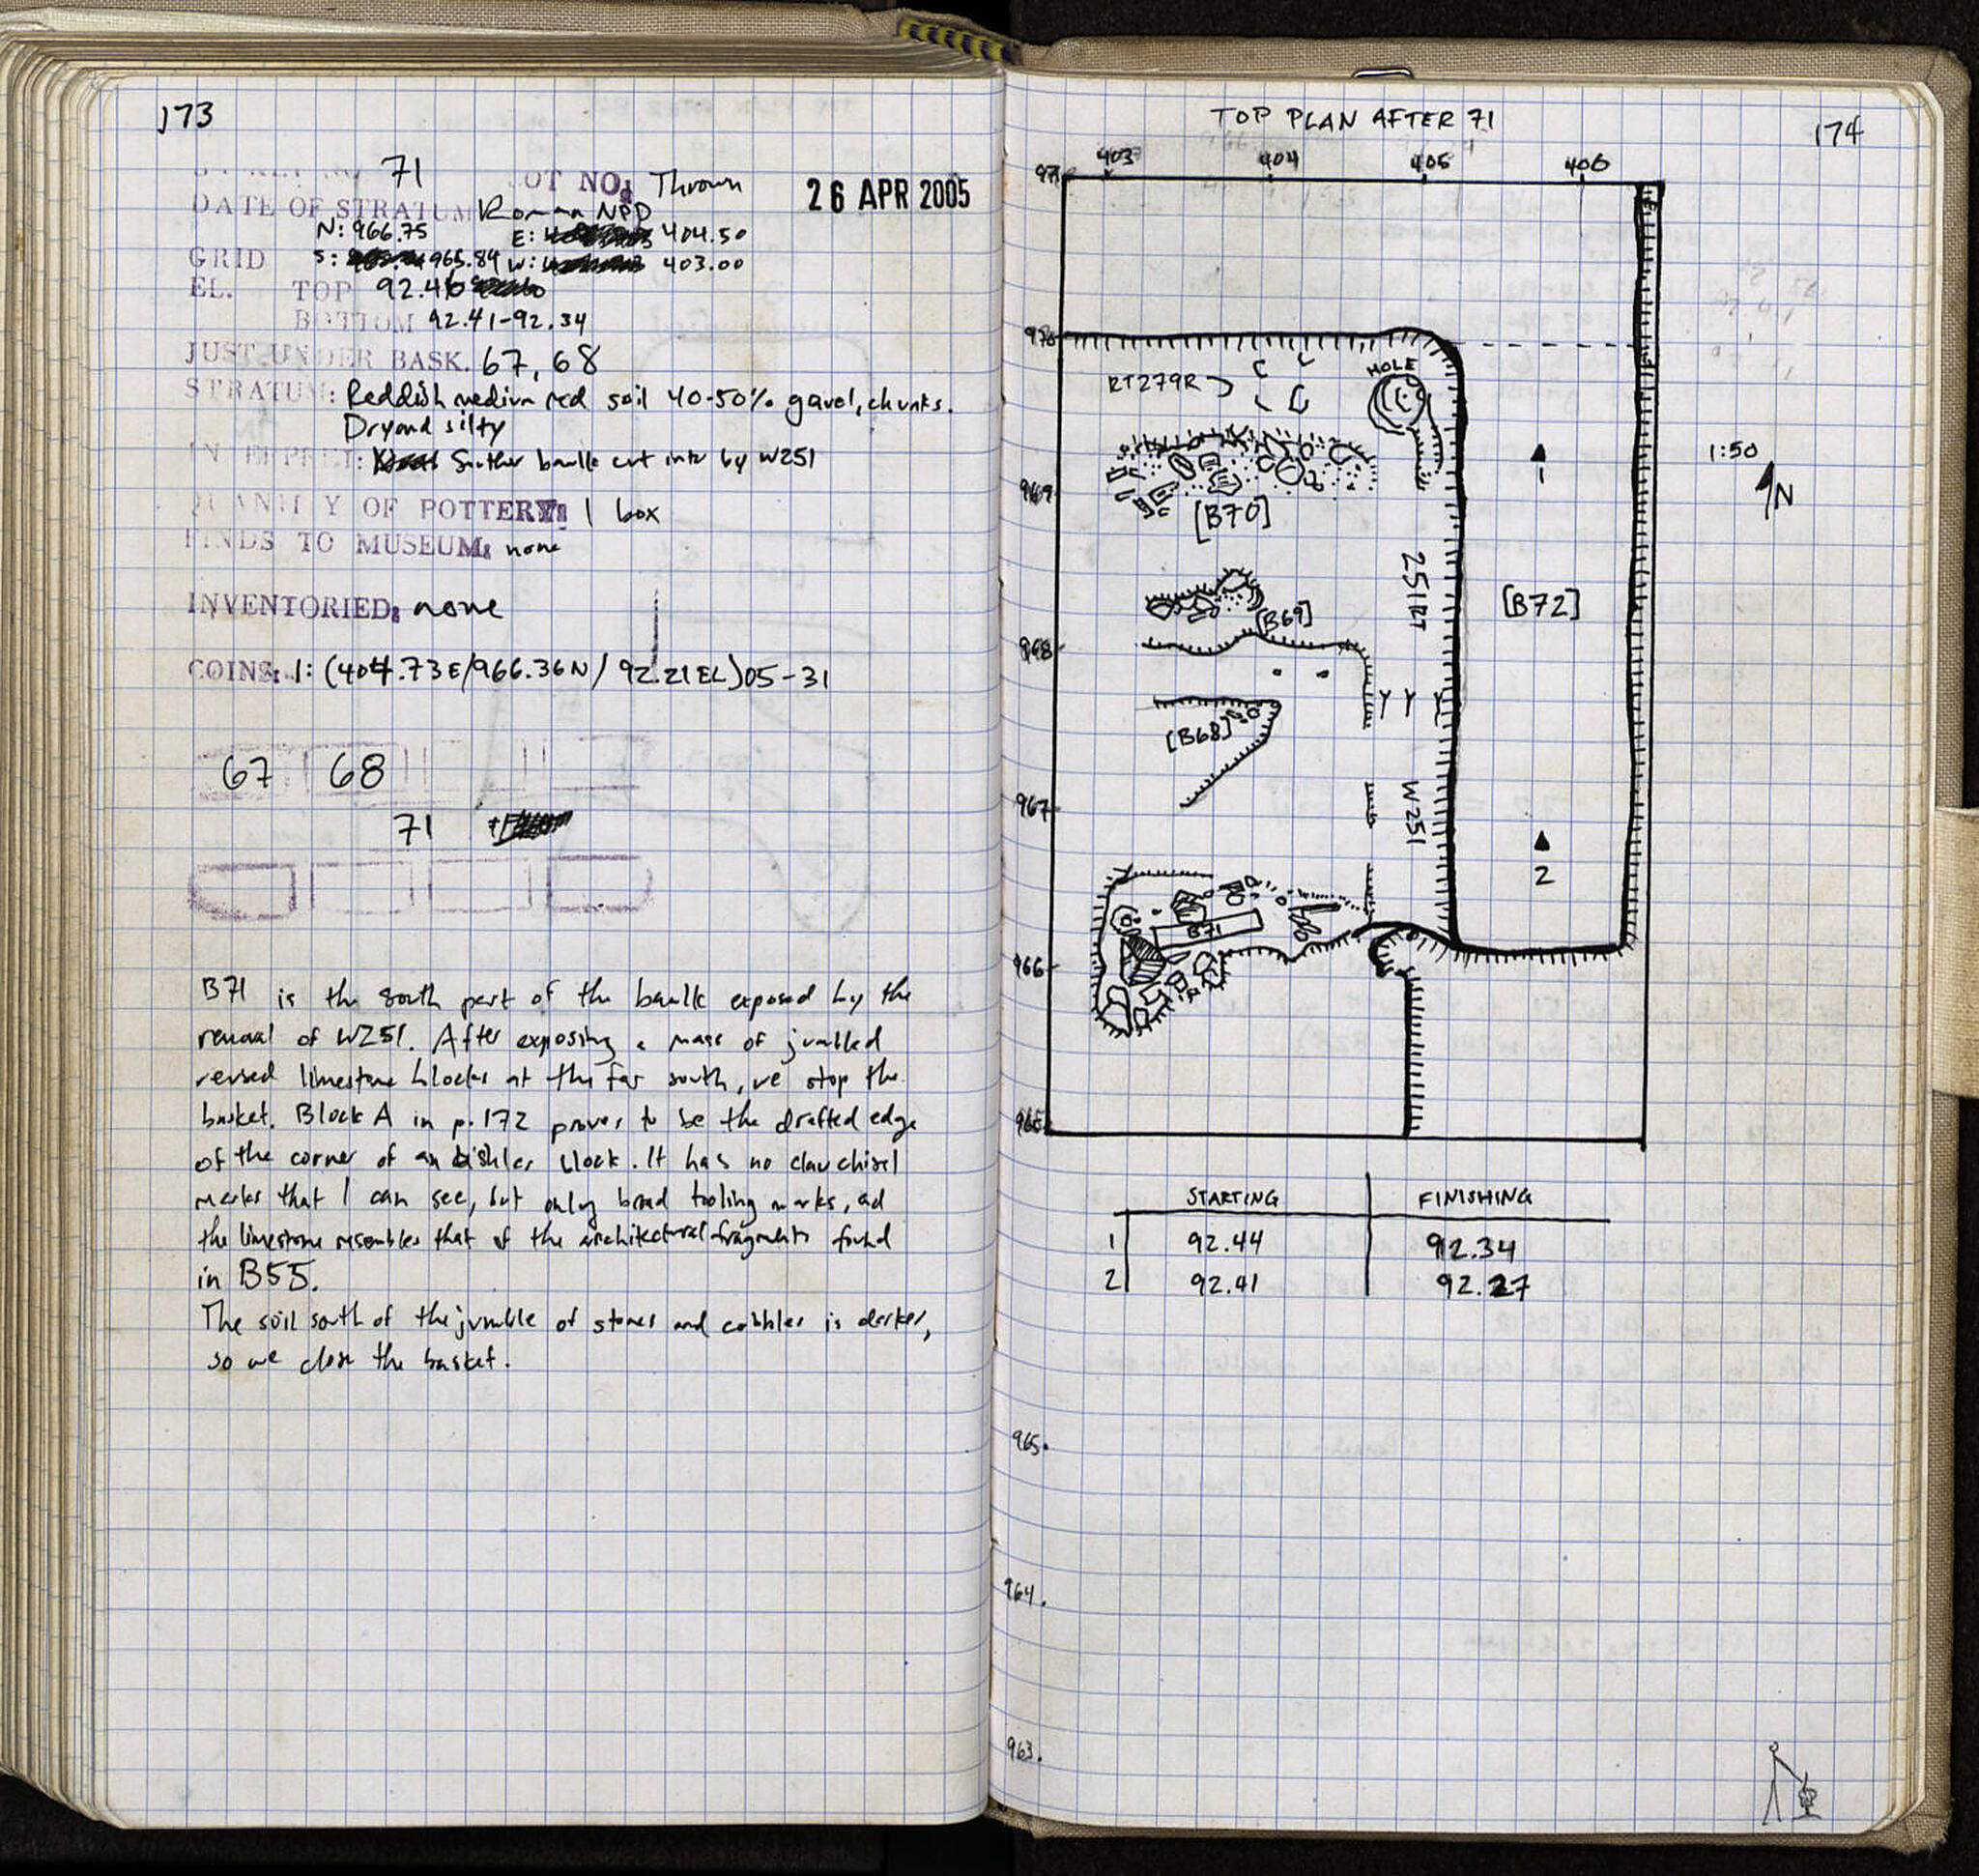 173
71 LOT NO: Thrown
26 APR 2005
DATE OF STRATUM Roman NPD
N: 966.75 E: 404.50
GRID S: 965.84 W: 403.00
EL. TOP 92.46
BOTTOM 92.41-92.34
JUST UNDER BASK. 67, 68
STRATUM: Reddish medium red soil 40-50% gavel, chunks.
Dry and silty
INTERPRET: Souther baulk cut into by W251
QUANTITY OF POTTERY: 1 box
FINDS TO MUSEUM: none
INVENTORIED: none
COINS: 1: (404.73E/966.36N/ 92.21EL) 05-31
67 68
71
B71 is the south part of the baulk exposed by the
removal of W251. After exposing a mass of jumbled
reused limestone blocks at the far south, we stop the
basket. Block A in p. 172 proves to be the drafted edge
of the corner of an ashlar block. It has no claw chisel
marks that I can see, but only broad tooling marks, ad
the limestone resembles that of the architectural fragments found
in B55.
The soil south of the jumble of stones and cobbles is darker,
so we close the basket.
TOP PLAN AFTER 71
174
403 404 405 406
971
970
HOLE
RT279R
1:50
1
N
969
[B70]
251RT
[B72]
[B69]
968
[B68]
967
W251
2
B71
966
965
STARTING FINISHING
1 92.44 92.34
2 92.41 92.27
965.
964.
963.